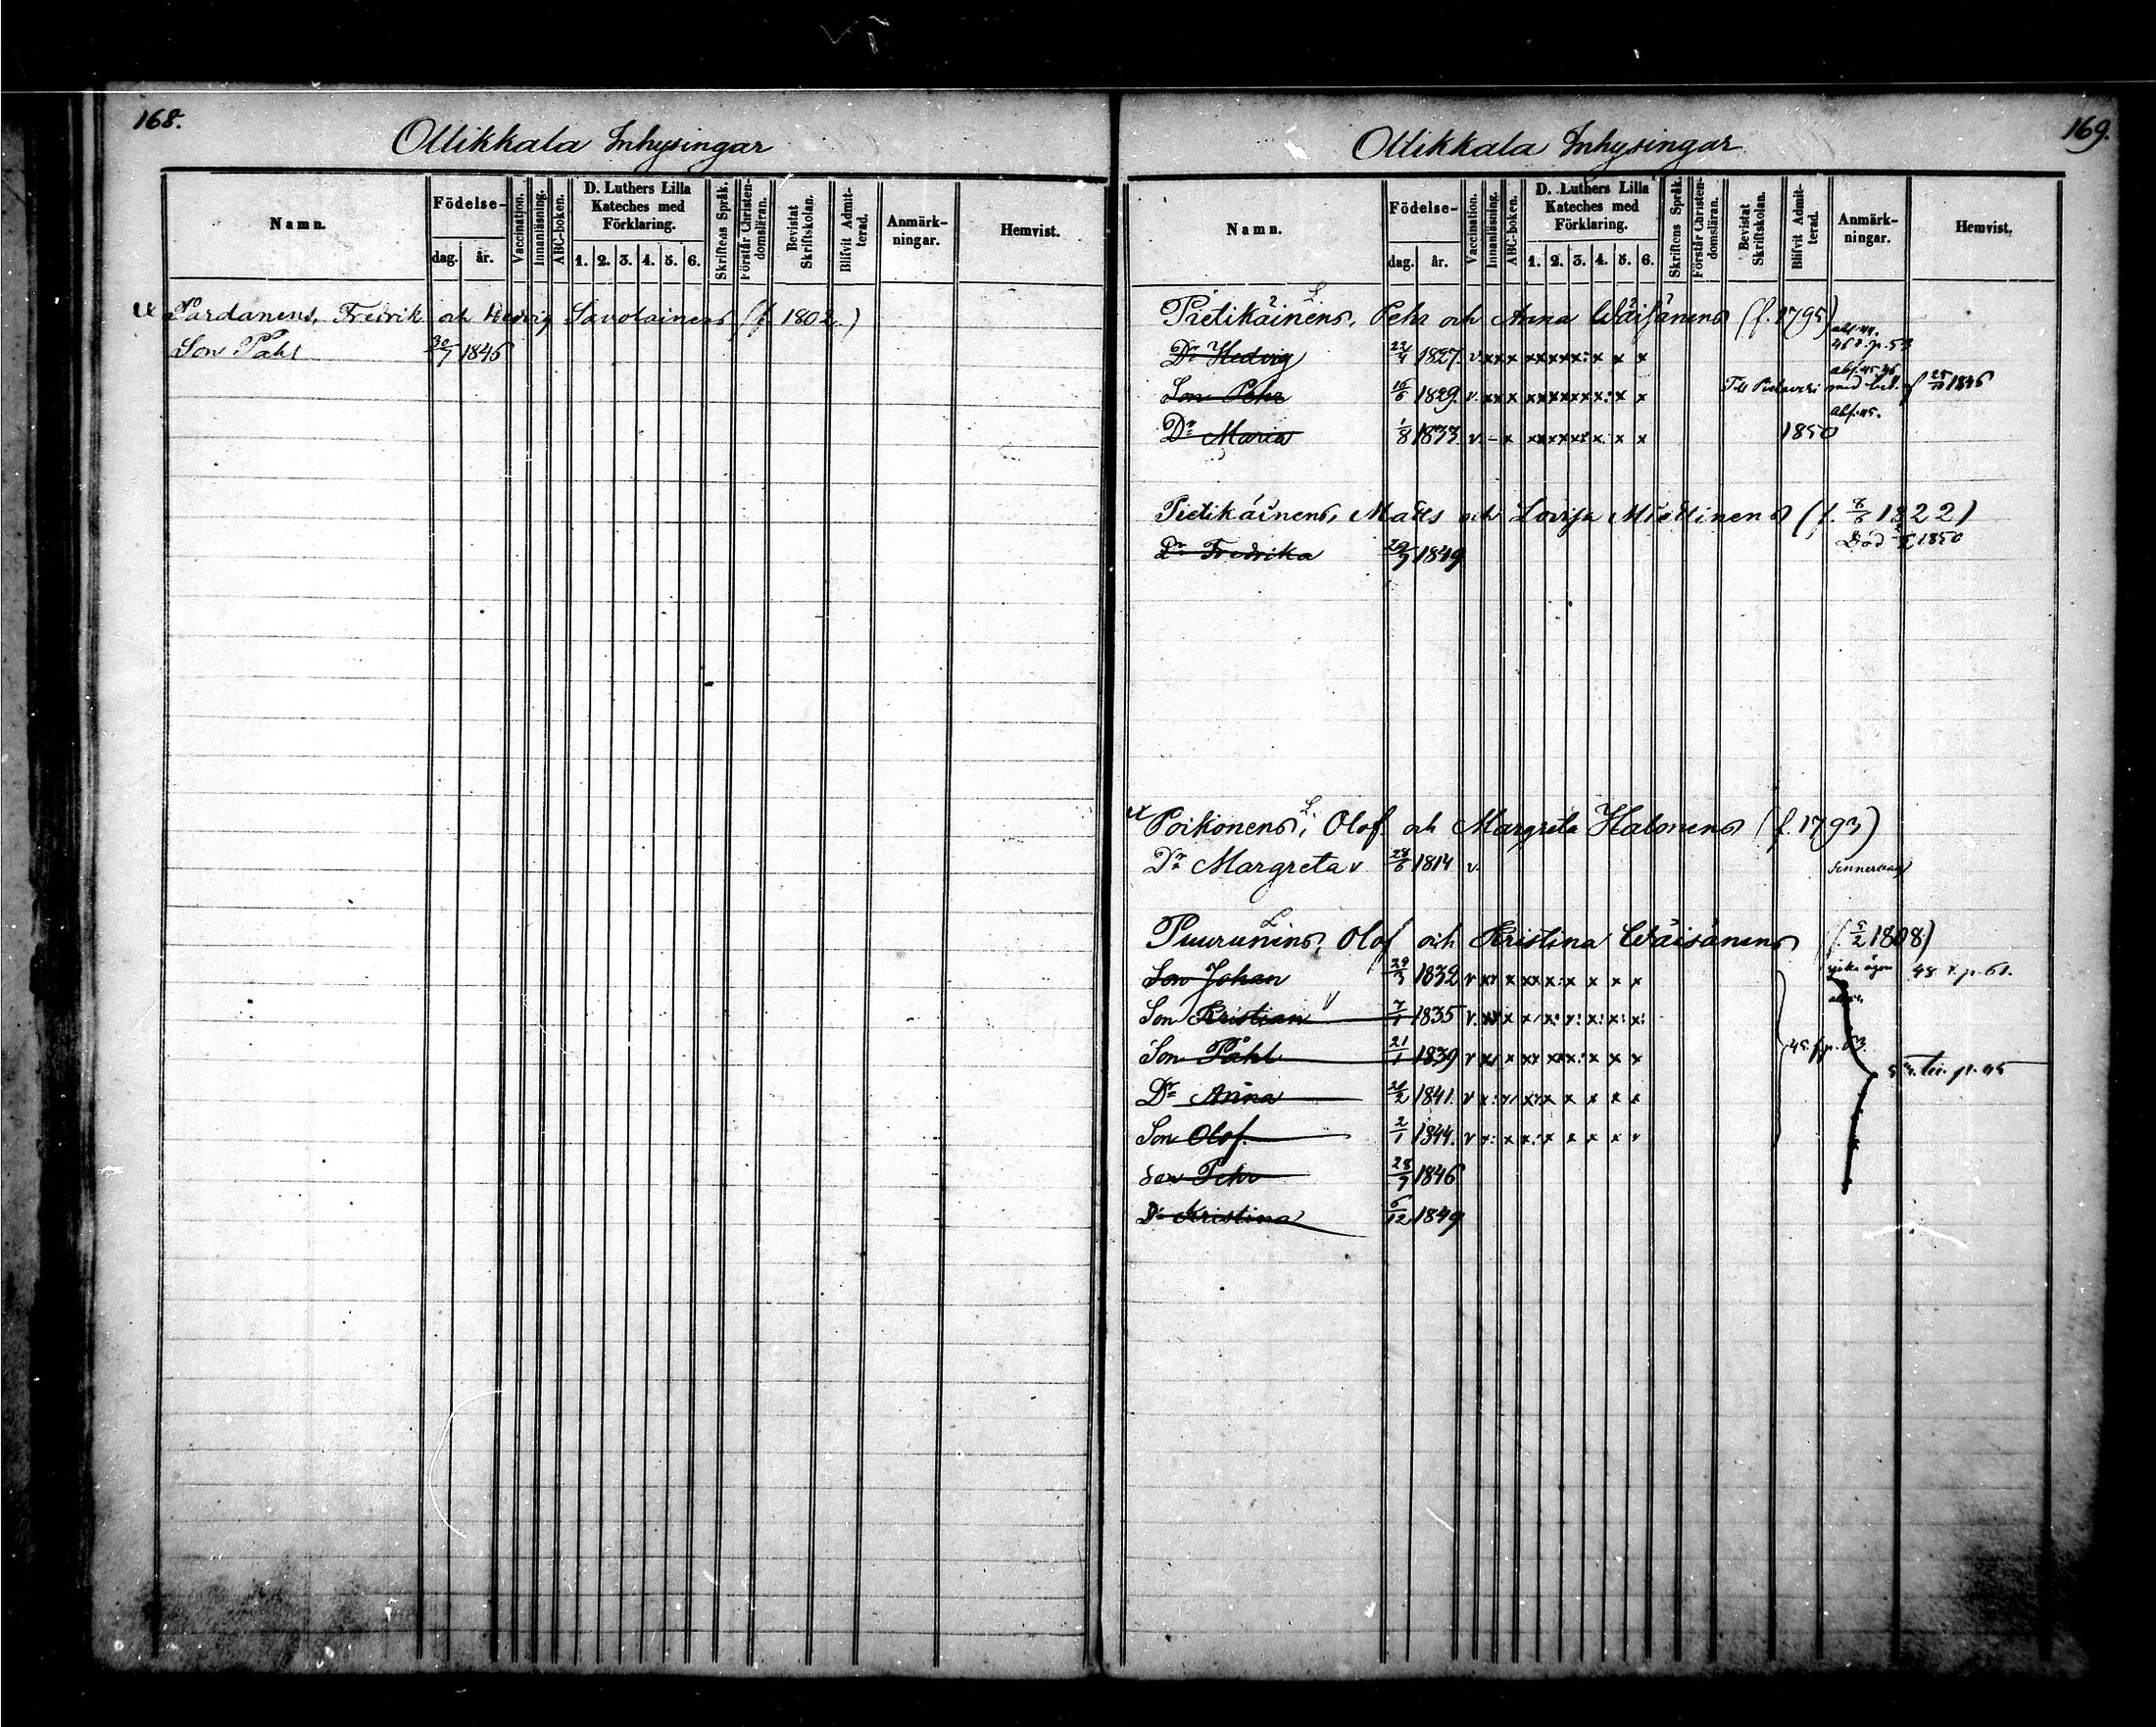 168.
Ollikkala Inhysingar
Namn.
Födelse-
dag. år.
Vaccination.
Innanläsning.
ABC-boken.
D. Luthers Lilla
Kateches med
Förklaring.
1. 2. 3. 4. 5. 6.
Skriftens Språk.
Förstår Christen-
domsläran.
Bevistat
Skriftskolan.
Blifvit Admit-
terad.
Anmärk-
ningar.
Hemvist.
Pardanens, Fredrik och Hedvig Savolainens (f. 1802.)
Son Påhl 30/7 1846
169.
Ollikkala Inhysingar
Namn.
Födelse-
dag. år.
Vaccination.
Innanläsning.
ABC-boken.
D. Luthers Lilla
Kateches med
Förklaring.
1. 2. 3. 4. 5. 6.
Skriftens Språk.
Förstår Christen-
domsläran.
Bevistat
Skriftskolan.
Blifvit Admit-
terad.
Anmärk-
ningar.
Hemvist.
Pietikäinens, Pehr och Anna Wäisänens (f. 1795)
Dr Hedvig 22/4 1827. v. xxx xxxxx: x x x p. 53
Son Pehr 16/6 1829. v. xxx xxxxxxx: x x med bet. af 25/10 1846
Dr Maria 1/8 1833 v. – x xxxxx: x. x x 1850
Pietikäinens, Matts och Lovisa Miettinens (f. 8/6 1822)
Dr Fredrika 29/9 1849 Död 1850
Poikonens, Olof och Margreta Halonens (f. 1793)
Dr Margreta v 28/6 1814 v.
Puurunens, Olof och Kristina Wäisänens (f. 5/2 1808)
Son Johan 29/3 1832 v xx x xx x: x x x x 48 p. 61.
Son Kristian v 7/1 1835 v. xx x x/x: x: x: x: x:
Son Påhl 21/1 1839 v xx x xx xxx: x x x 45. p. 53.
Dr Anna 1841. v x: x/ xxx x x x x
Son Olof. 2/1 1844. v x: x x: x x x x v
Son Pehr 28/7 1846
Dr Kristina 6/12 1849